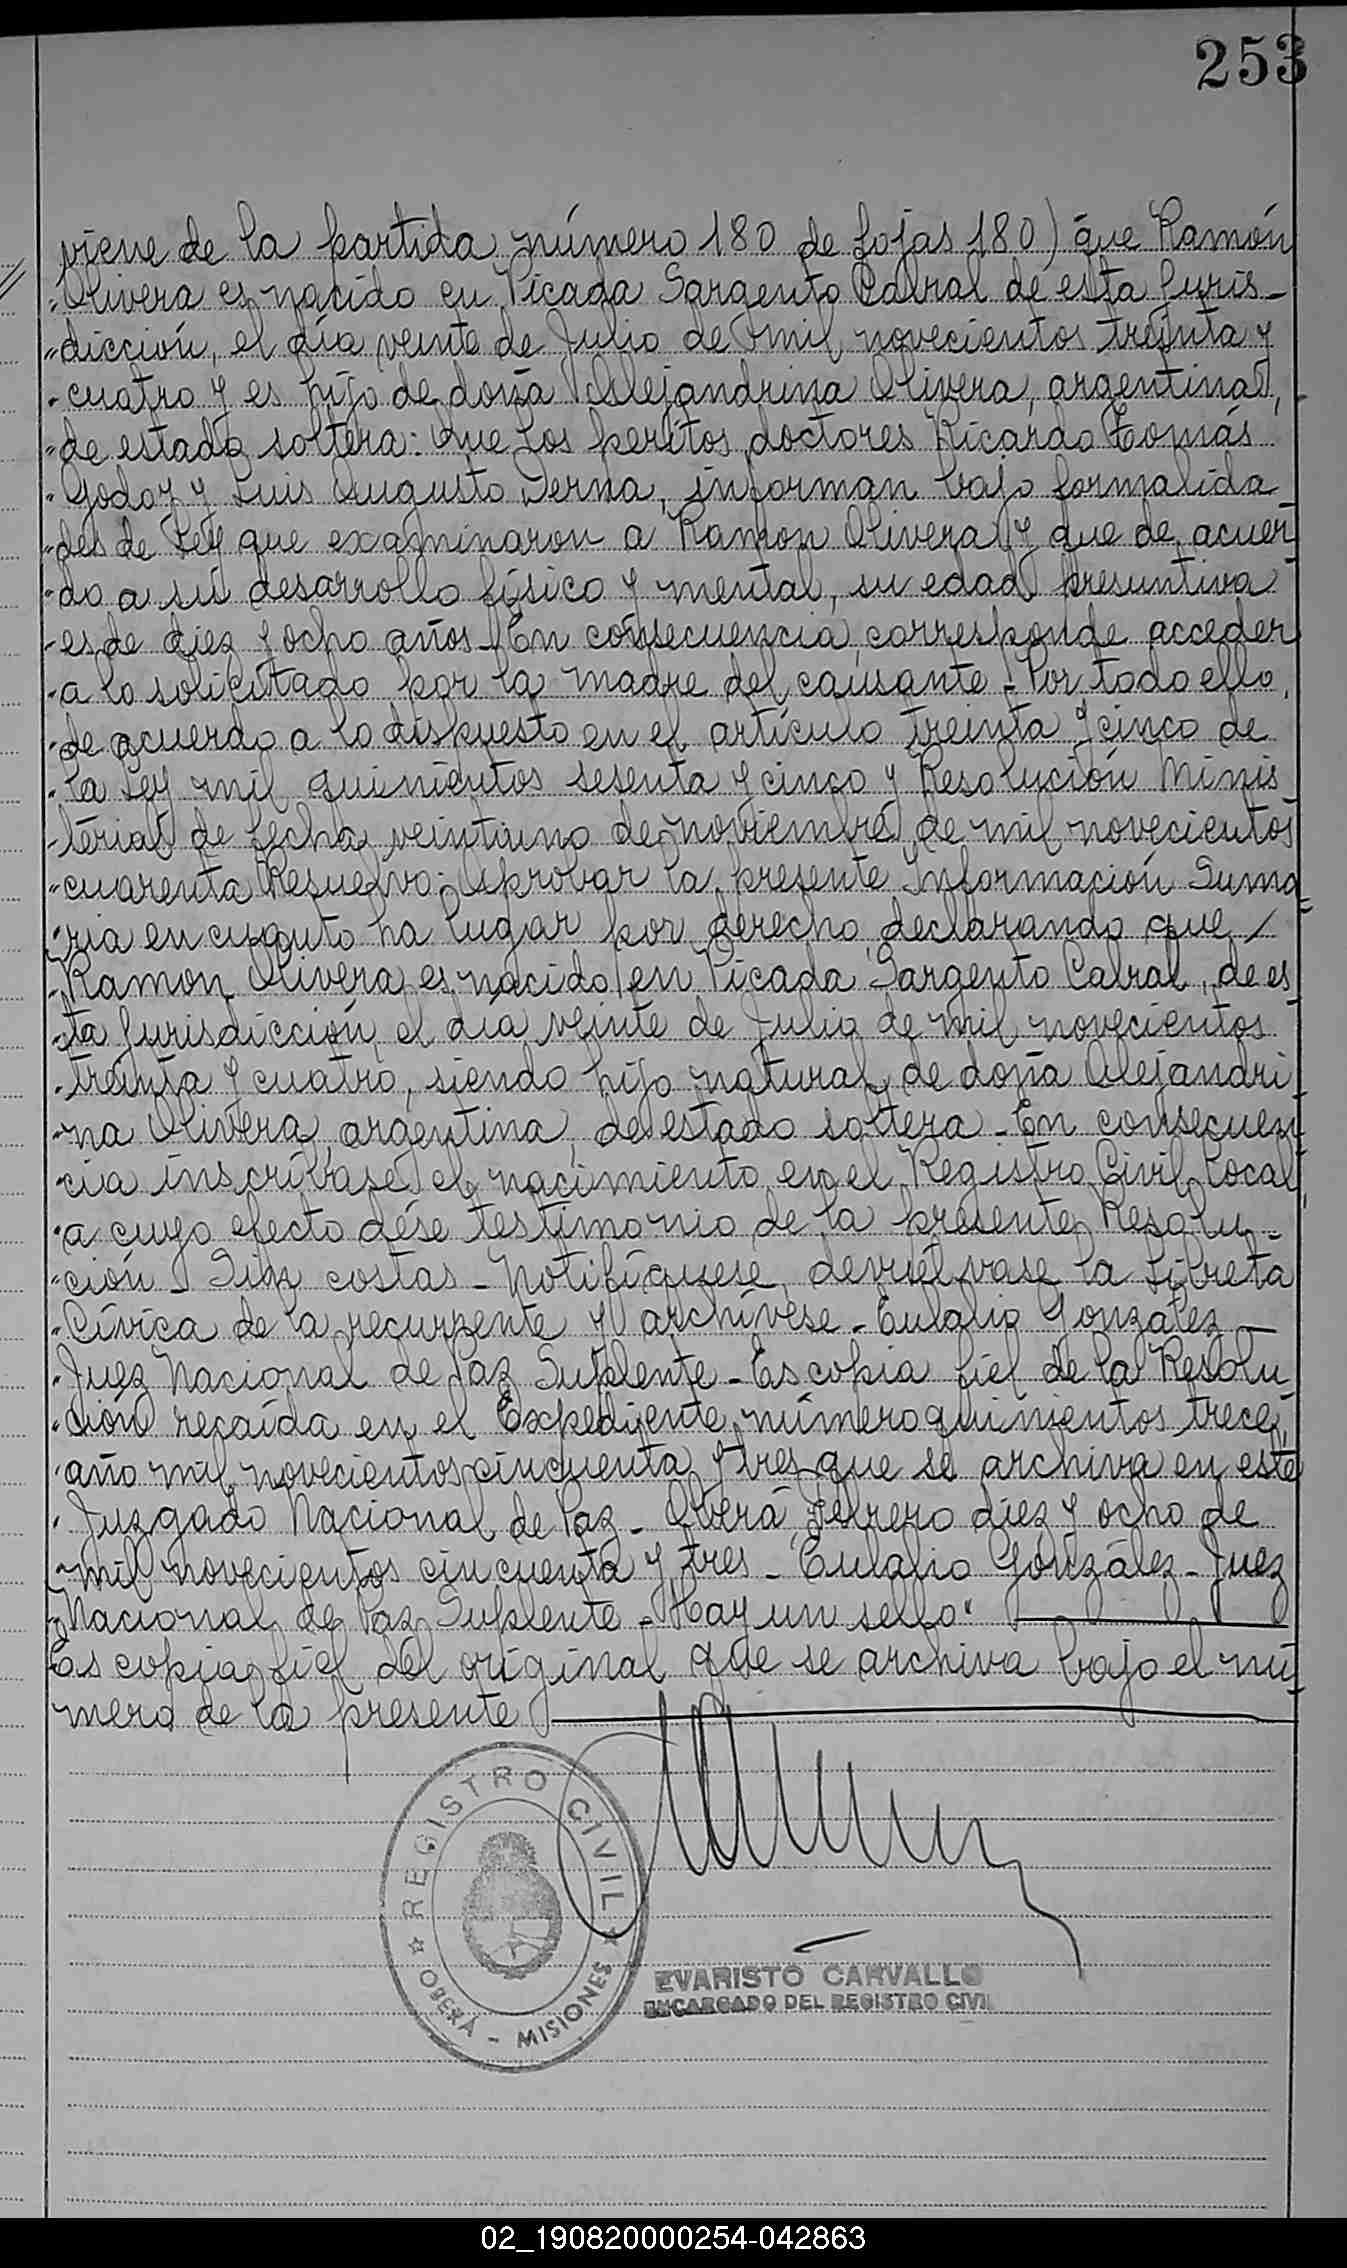 253
viene de la partida número 180 de fojas 180) que Ramón
"Olivera es nacido en Picada Sargento Cabral de esta Juris-
"dicción, el día veinte de Julio de mil novecientos treinta y
"cuatro y es hijo de doña Alejandrina Olivera, argentina,
"de estado soltera: Que los peritos doctores Ricardo Tomás
"Godoy y Luis Augusto Derna, informan bajo formalida
"des de Ley que examinaron a Ramon Olivera y que de acuer
"do a su desarrollo físico y mental, su edad presuntiva
"es de diez y ocho años - En consecuencia, corresponde acceder
"a lo solicitado por la madre del causante - Por todo ello,
"de acuerdo a lo dispuesto en el artículo treinta y cinco de
"la Ley mil quinientos sesenta y cinco y Resolución Minis
"terial de fecha veintiuno de noviembre de mil novecientos
"cuarenta Resuelvo: Aprobar la presente Información Suma
"ria en cuanto ha lugar por derecho, declarando que
"Ramon Olivera es nacido en Picada Sargento Cabral, de es
"ta Jurisdicción, el día veinte de Julio de mil novecientos
"treinta y cuatro, siendo hijo natural de doña Alejandri
"na Olivera, argentina, de estado soltera - En consecuen
"cia inscríbase el nacimiento en el Registro Civil Local,
"a cuyo efecto dése testimonio de la presente Resolu-
"ción - Sin costas - Notifíquese, devuélvase la Libreta
"Cívica de la recurrente y archívese - Eulalio González -
"Juez Nacional de Paz Suplente - Es copia fiel de la Resolu
"ción recaída en el Expediente número quinientos trece,
"año mil novecientos cincuenta y tres que se archiva en este
"Juzgado Nacional de Paz - Oberá, Febrero diez y ocho de
"mil novecientos cincuenta y tres - Eulalio González - Juez
"Nacional de Paz Suplente - Hay un sello"
Es copia fiel del original que se archiva bajo el nú
mero de la presente
REGISTRO CIVIL
OBERÁ - MISIONES
EVARISTO CARVALLO
ENCARGADO DEL REGISTRO CIVIL
02_190820000254-042863